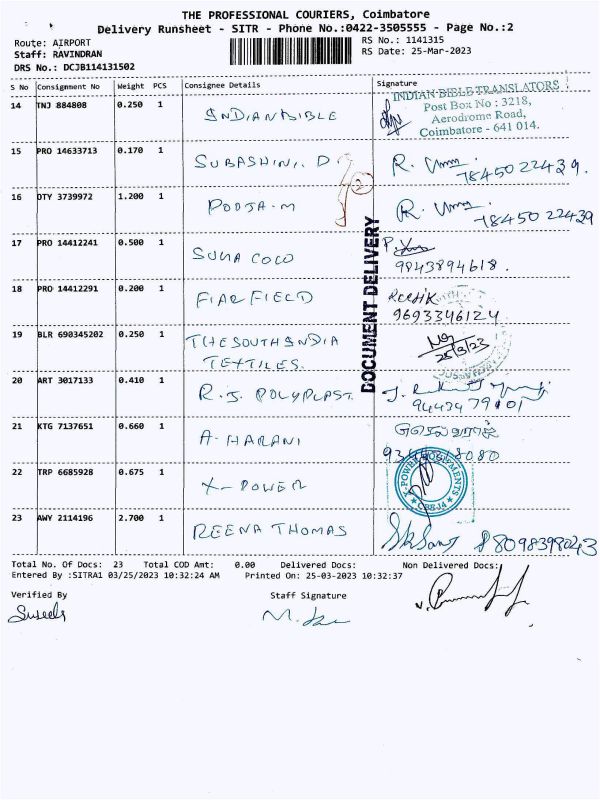 THE PROFESSIONAL COURIERS, Coimbatore
Delivery Runsheet - SITR - Phone No.:0422-3505555 - Page No.:2
Route: AIRPORT RS No.: 1141315
Staff: RAVINDRAN RS Date: 25-Mar-2023
DRS No.: DCJB114131502
S No Consignment No Weight PCS Consignee Details Signature
INDIAN BIBLE TRANSLATORS
Post Box No : 3218,
Aerodrome Road,
Coimbatore - 641 014.
14 TNJ 884808 0.250 1 INDIAN BIBLE
15 PRO 14633713 0.170 1 SUBASHINI. D R.
7845022439.
16 OTY 3739972 1.200 1 POOJA-M R.
7845022439
2
DOCUMENT DELIVERY
17 PRO 14412241 0.500 1 SUKA COCO P.
9843894618.
18 PRO 14412291 0.200 1 FIAR FIELD
9693346124
19 BLR 690345202 0.250 1 THE SOUTH INDIA
TEXTILES. 25/3/23
20 ART 3017133 0.410 1 R.J. POLYPLAST J.
9443479101
21 KTG 7137651 0.660 1 A. HARANI
22 TRP 6685928 0.675 1 X-POWER
CBE-14
23 AWY 2114196 2.700 1 REENA THOMAS 8098398043
Total No. Of Docs: 23 Total COD Amt: 0.00 Delivered Docs: Non Delivered Docs:
Entered By :SITRA1 03/25/2023 10:32:24 AM Printed On: 25-03-2023 10:32:37
Verified By Staff Signature